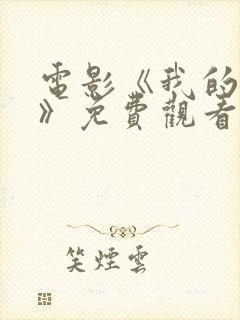 電影《我的
》免費觀看
笑煙雲